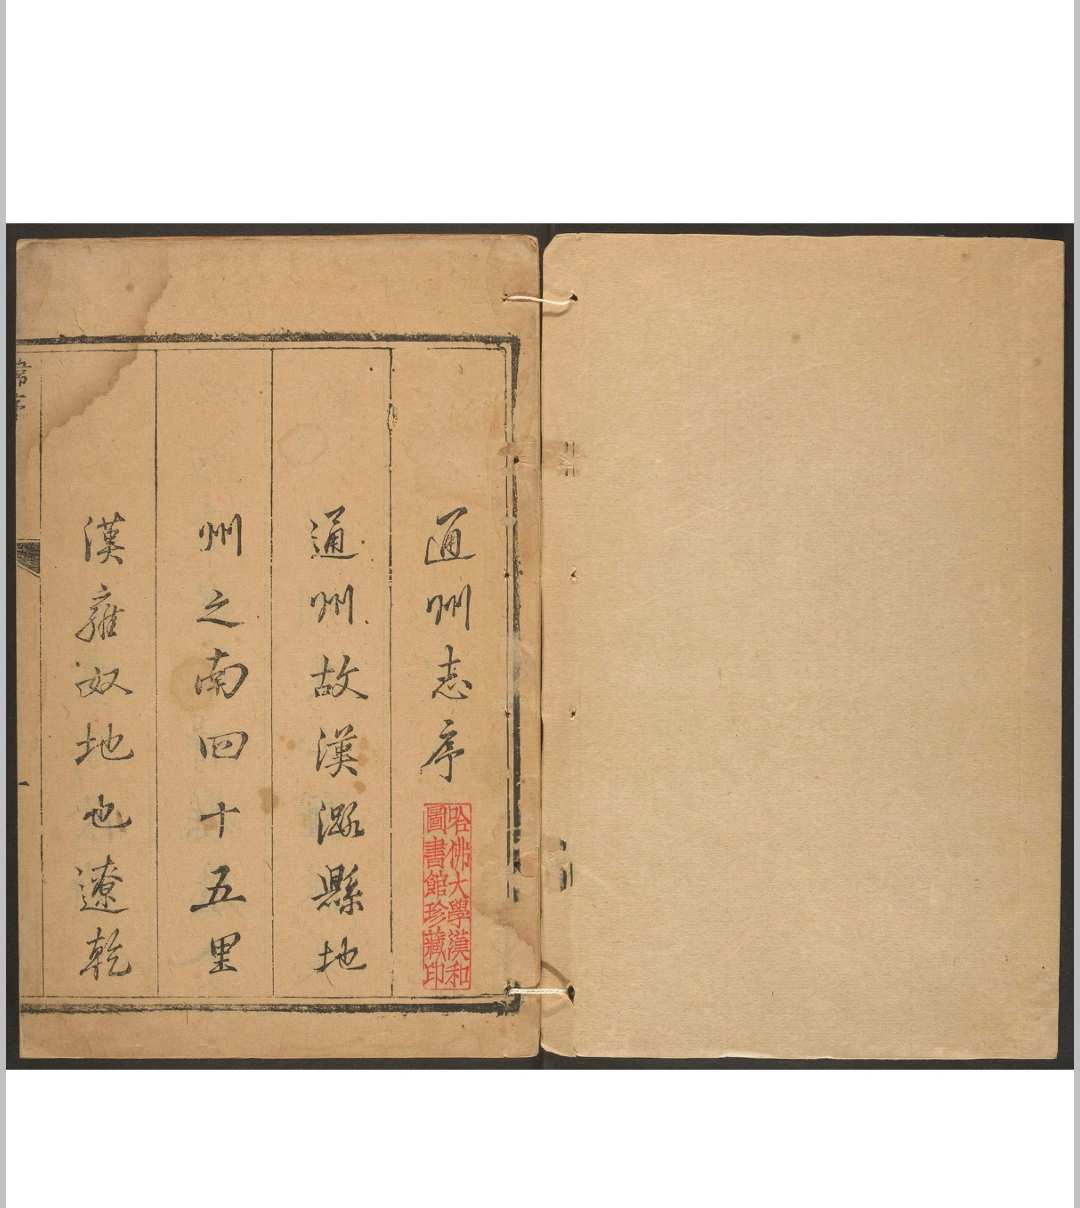 通州志序
哈佛大學漢和
圖書館珍藏印
通州故漢潞縣地
州之南四十五里
漢雍奴地也遼乾
序
一